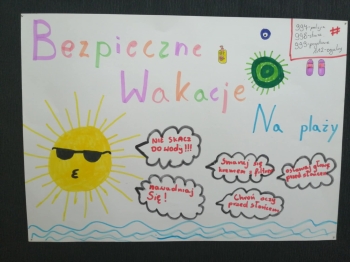 Bezpieczne
Wakacje
Na plaży
997-policja
998-straż
999-pogotowie
112-
#
NIE SKACZ
DO WODY!!!
NAWADNIAJ
SIĘ!
Smaruj się
kremem z filtrem
Chroń oczy
przed słońcem
osłaniaj głowę
przed słońcem